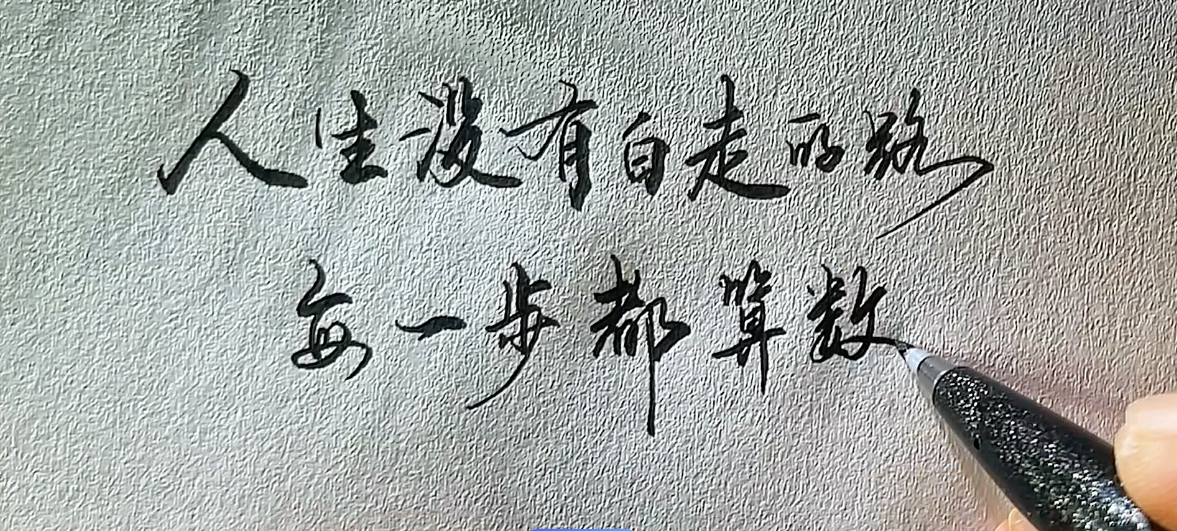 人生没有白走的路
每一步都算数